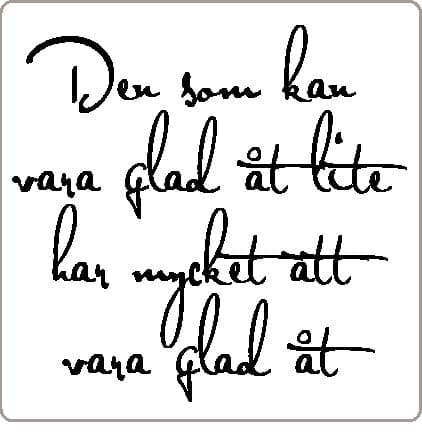 Den som kan
vara glad åt lite
har mycket att
vara glad åt